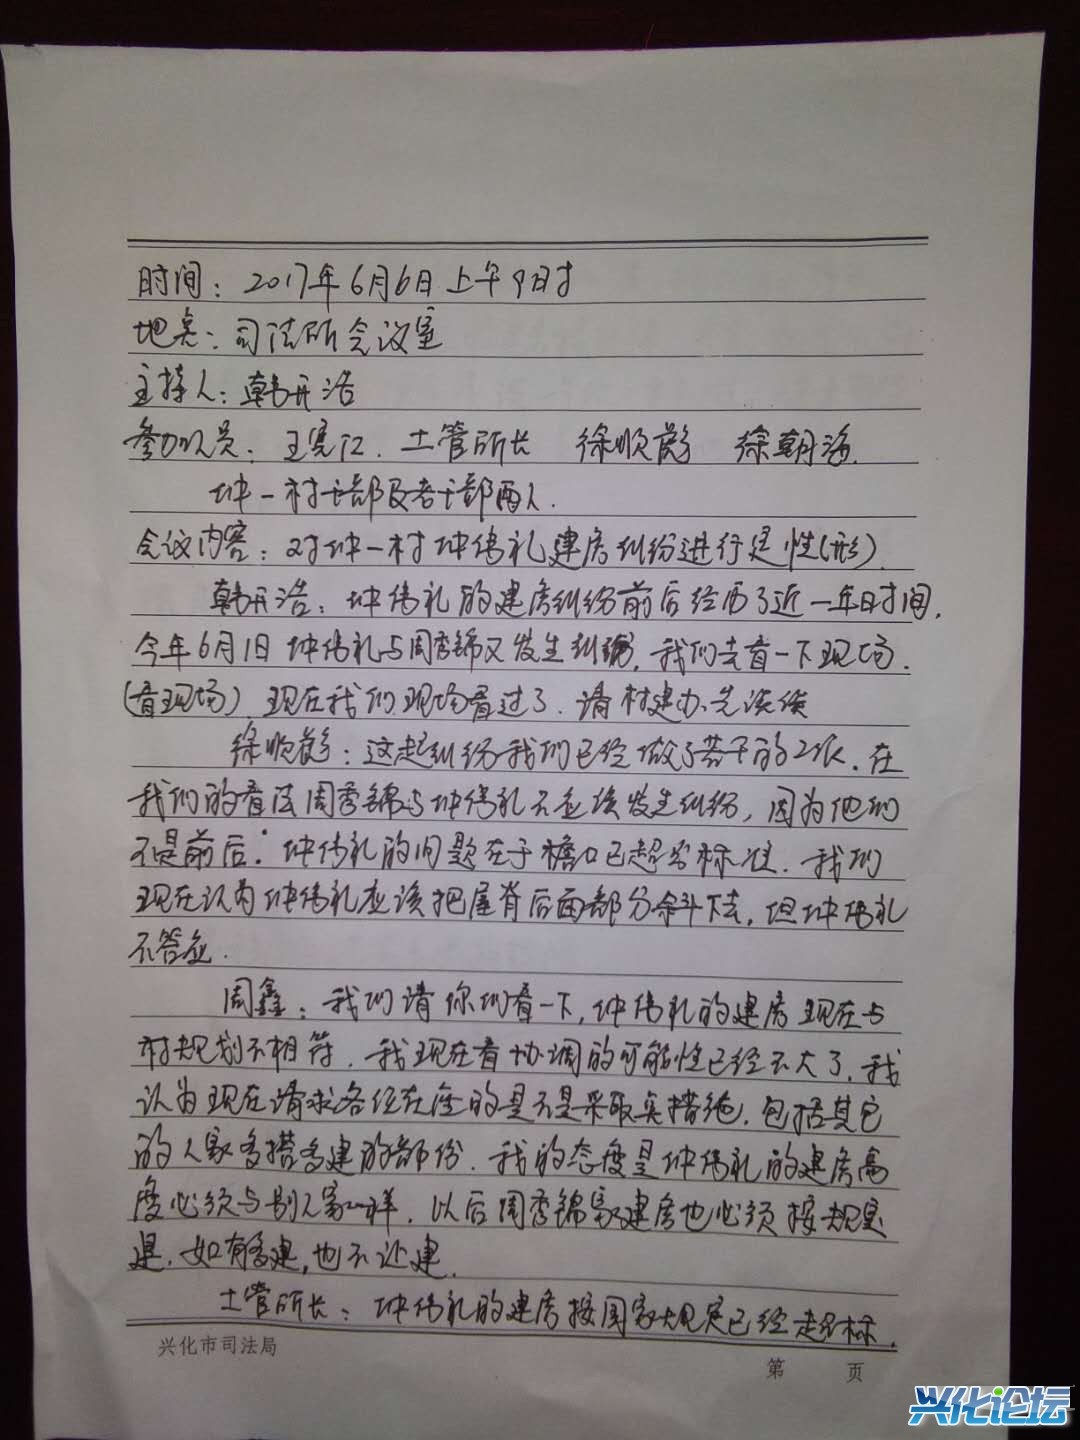 时间：2017年6月6日上午9日寸
地点：司法所会议室
主持人：韩开浩
参加人员：王宪仁. 土管所长 徐顺彪 徐朝海.
坤一村干部及老干部两人.
会议内容：对坤一村坤伟礼建房纠纷进行定性(形).
韩开浩：坤伟礼的建房纠纷前后经历了近一年时间.
今年6月1日坤伟礼与周秀锦又发生纠纷, 我们去看一下现场.
(看现场) 现在我们现场看过了. 请村建办先谈谈
徐顺彪：这起纠纷我们已经做了若干的工作. 在
我们的看法周秀锦与坤伟礼不应该发生纠纷, 因为他们
不是前后. 坤伟礼的问题在于檐口已超出标准. 我们
现在认为坤伟礼应该把屋脊后面部分余下去, 但坤伟礼
不答应.
周鑫：我们请你们看一下, 坤伟礼的建房现在与
村规划不相符. 我现在看协调的可能性已经不大了. 我
认为现在请求各位在座的是不是采取实措施. 包括其它
的人家多搭多建的部份. 我的态度是坤伟礼的建房高
度必须与别人家一样. 以后周秀锦家建房也必须按规定
建. 如有多建, 也不让建.
土管所长：坤伟礼的建房按国家规定已经超标.
兴化市司法局
第 页
兴化论坛